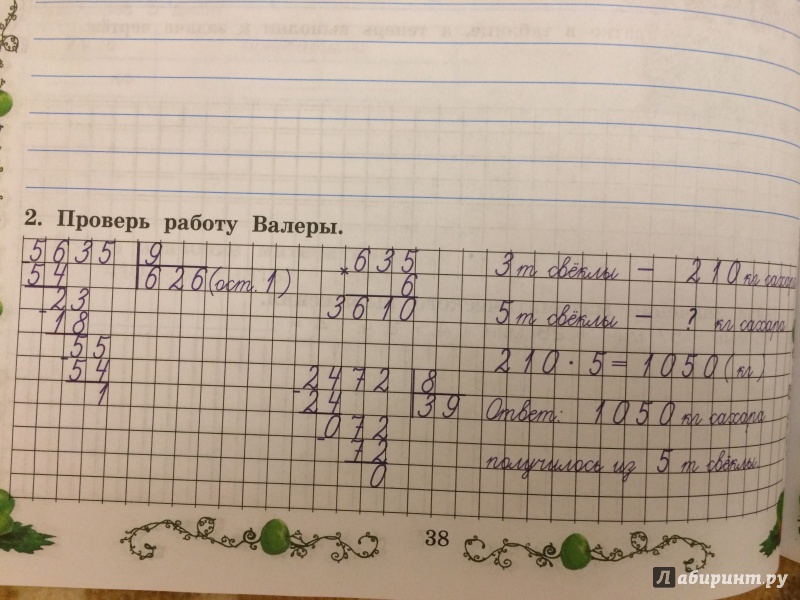 2. Проверь работу Валеры.
5635 9
54 626 (ост. 1)
-23
18
-55
54
1
×635
6
3610
-2472 8
24 39
-072
72
0
3 т свёклы — 210 кг сахара
5 т свёклы — ? кг сахара
210 · 5 = 1050 (кг)
Ответ: 1050 кг сахара
получилось из 5 т свёклы.
38
Лабиринт.ру